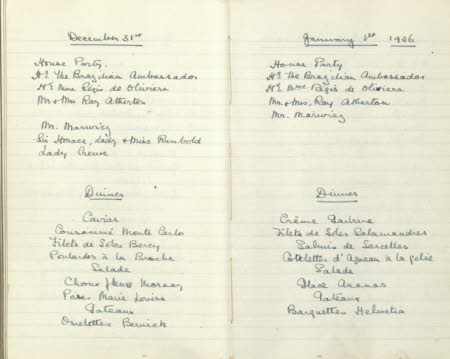 December 31st
House Party.
HE The Brazilian Ambassador
HE Mme Régis de Oliviera
Mr & Mrs Ray Atherton
Mr. Marwicz
Sir Horace, Lady & Miss Rumbold
Lady Crewe
Dinner
Caviar
Consommé Monte Carlo
Filets de Soles Bercy
Poulardes à la Broche
Salade
Choux Fleurs Mornay
Poires Marie Louise
Gateaux
Omelettes Berwick
January 1st 1936
House Party
HE The Brazilian Ambassador
HE Mme Régis de Oliviera
Mr & Mrs, Ray Atherton
Mr. Marwicz
Dinner
Crême
Filets de Soles Salamandres
Salmis de Sarcelles
Cotelettes d'Agneau à la gelée
Salade
Glace Ananas
Gateaux
Barquettes Helvetia